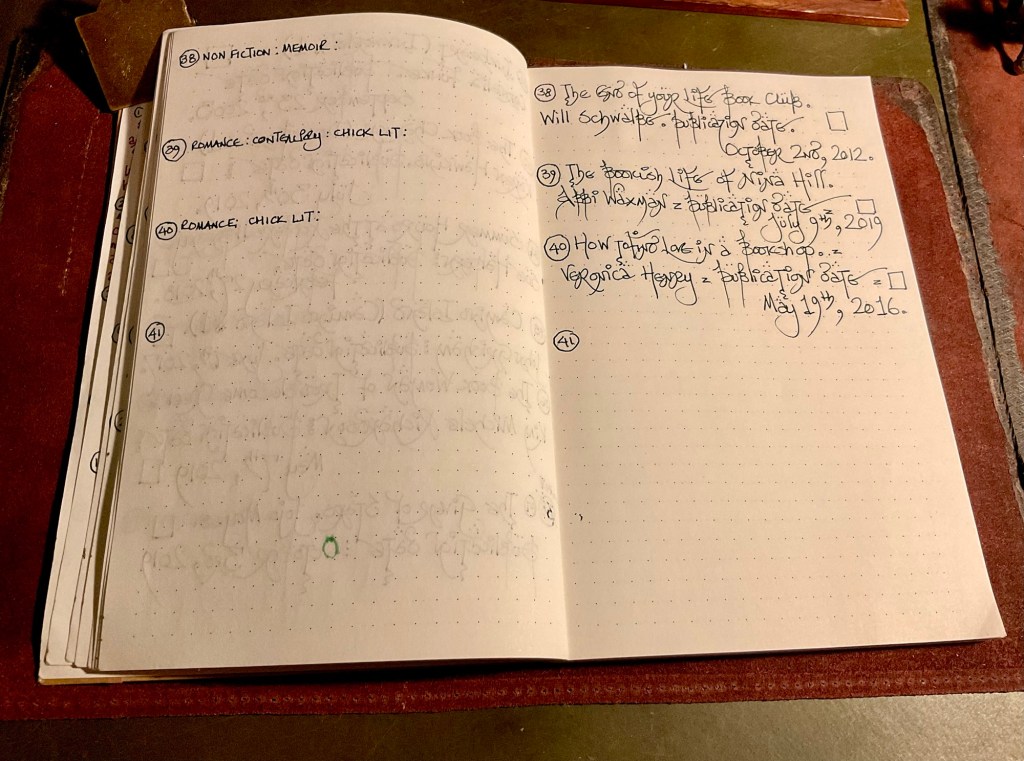 38 NON FICTION: MEMOIR:
39 ROMANCE: CONTEMPORY: CHICK LIT:
40 ROMANCE: CHICK LIT:
41
38 The End of your Life Book Club.
Will Schwalbe. publication date.
October 2nd, 2012.
39 The Bookish Life of Nina Hill.
Abbi Waxman = publication date =
July 9th, 2019
40 How to find Love in a Bookshop. =
Veronica Henry = publication date =
May 19th, 2016.
41